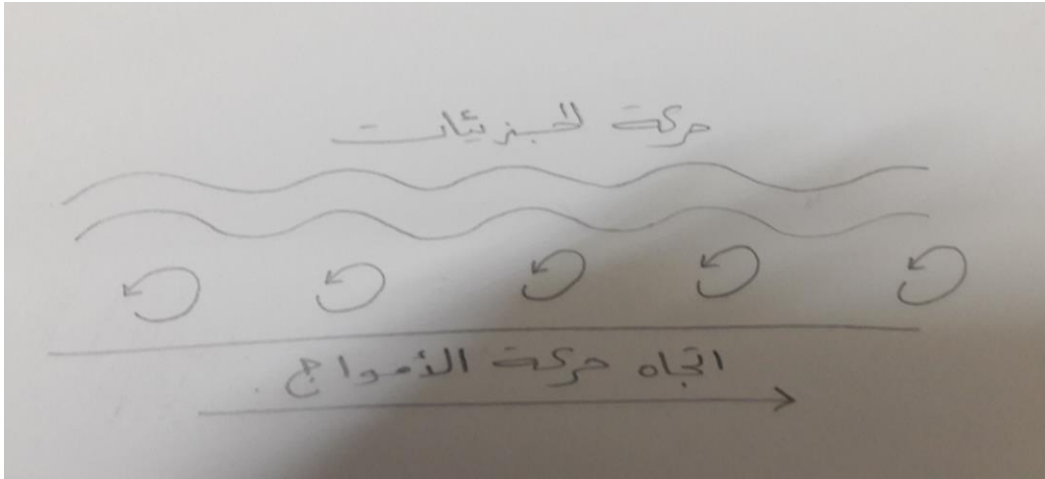 حركة الجزيئات
اتجاه حركة الأمواج